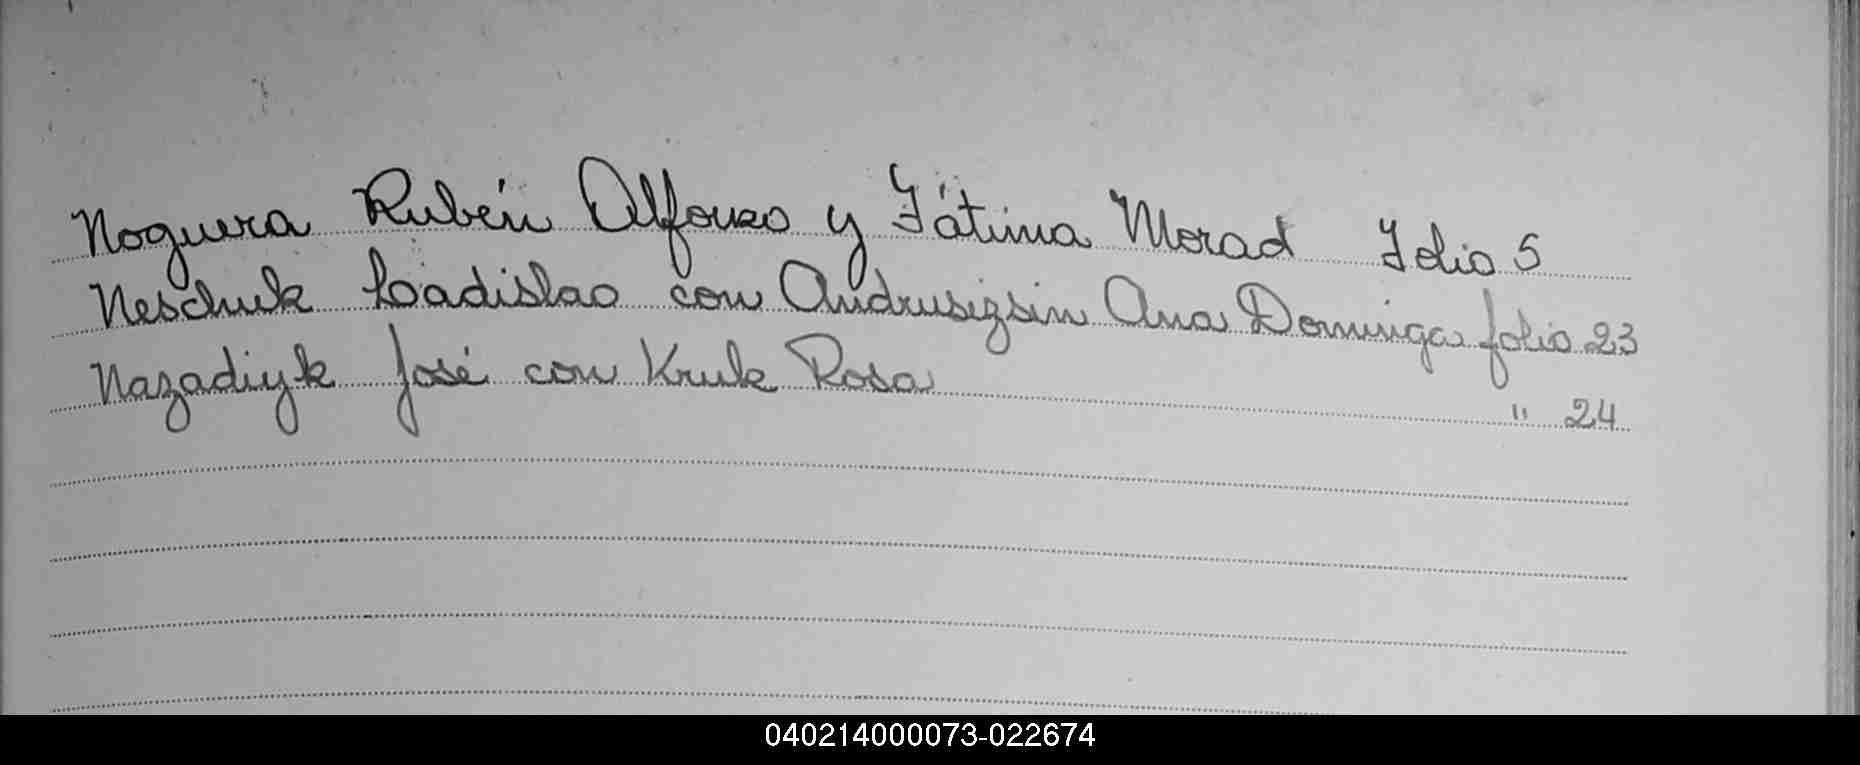 Noguera Rubén Alfonso y Fátima Morad Folio 5
Neschuk Ladislao con Andrusizsin Ana Dominga folio 23
Nazadiyk José con Kruk Rosa " 24
040214000073-022674